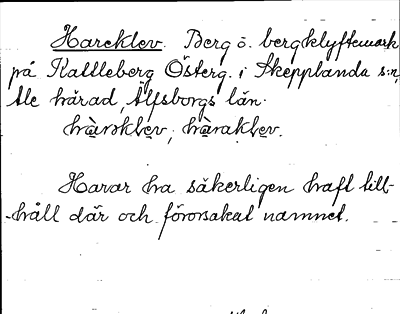 Hareklev. Berg o. bergklyftemark
på Kattleberg Österg. i Skepplanda s:n,
Ale härad, Älfsborgs län.
hàraklev, hàraklev.
Harar ha säkerligen haft till-
håll där och förorsakat namnet.